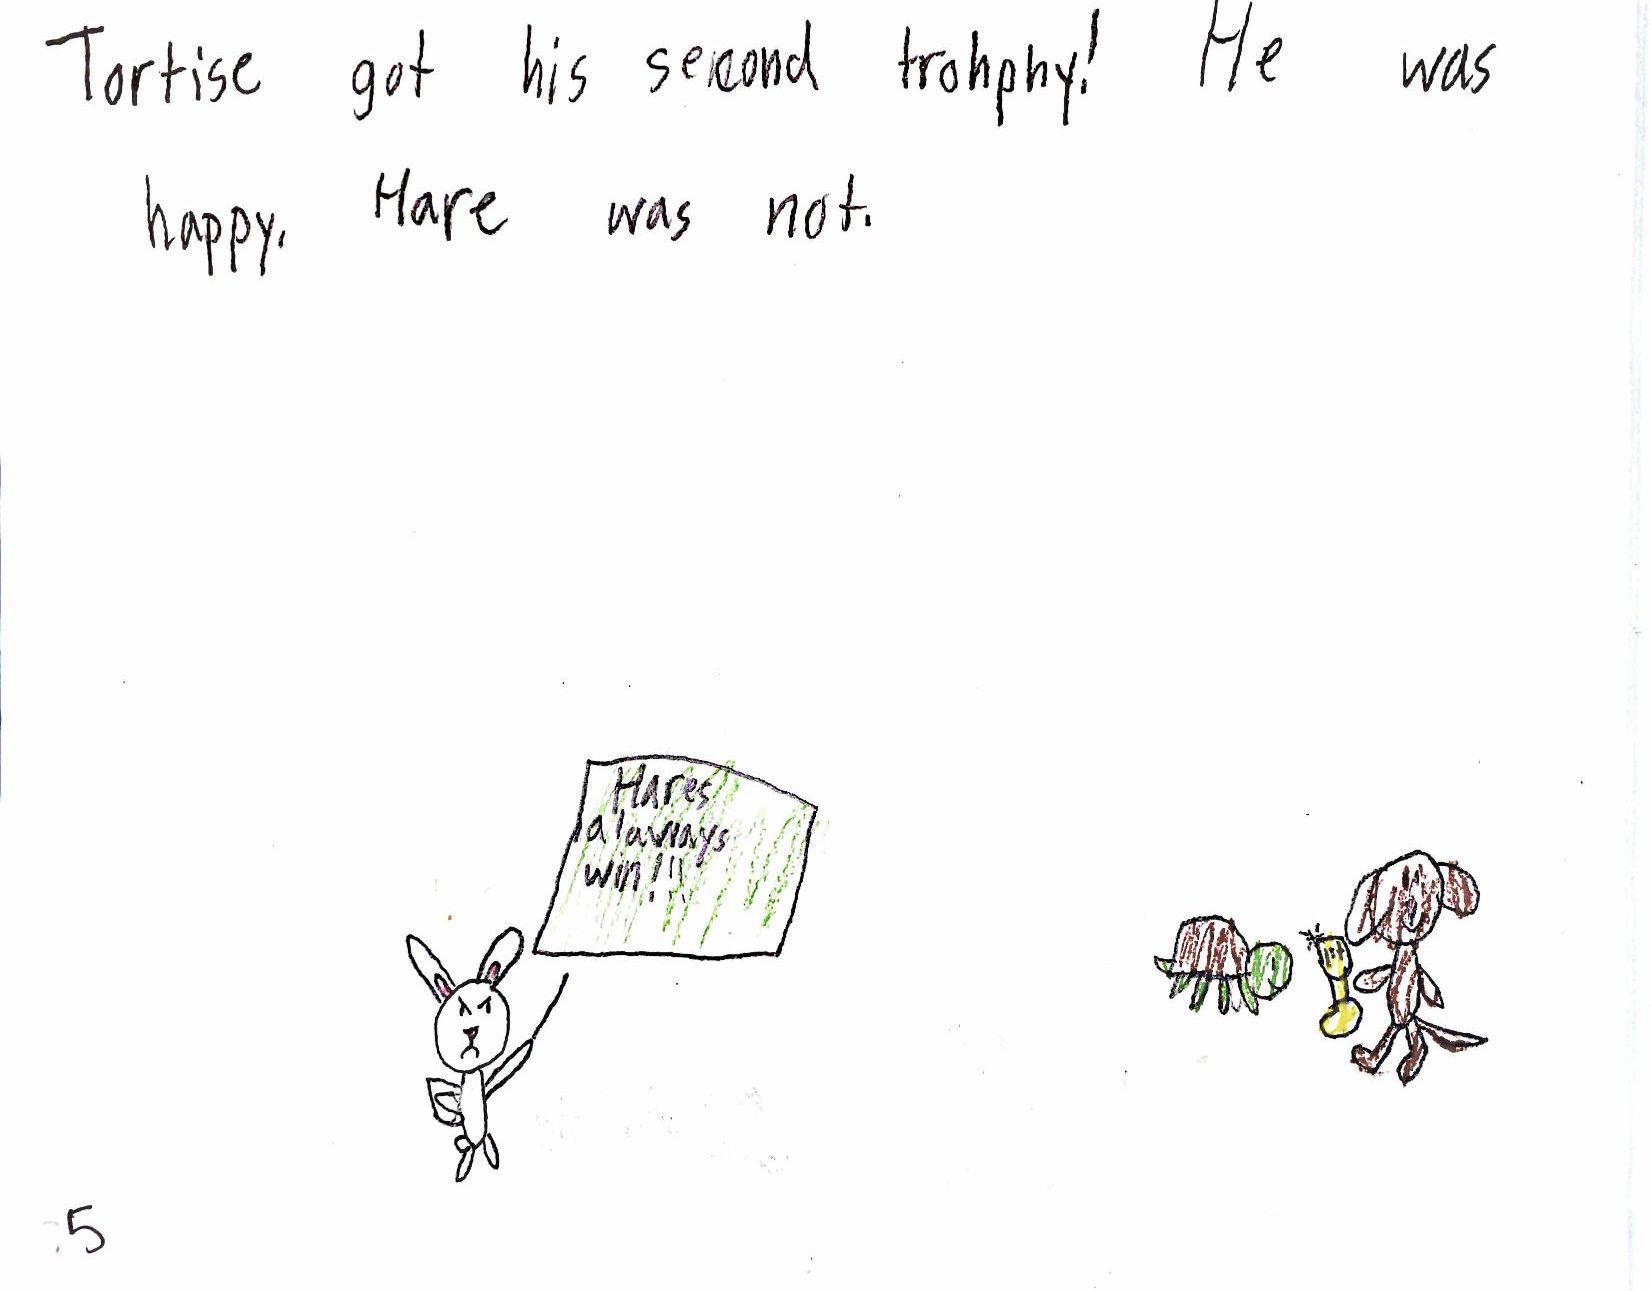 Tortise got his second trohphy! He was
happy. Hare was not.
Hares
always
win!!!
5